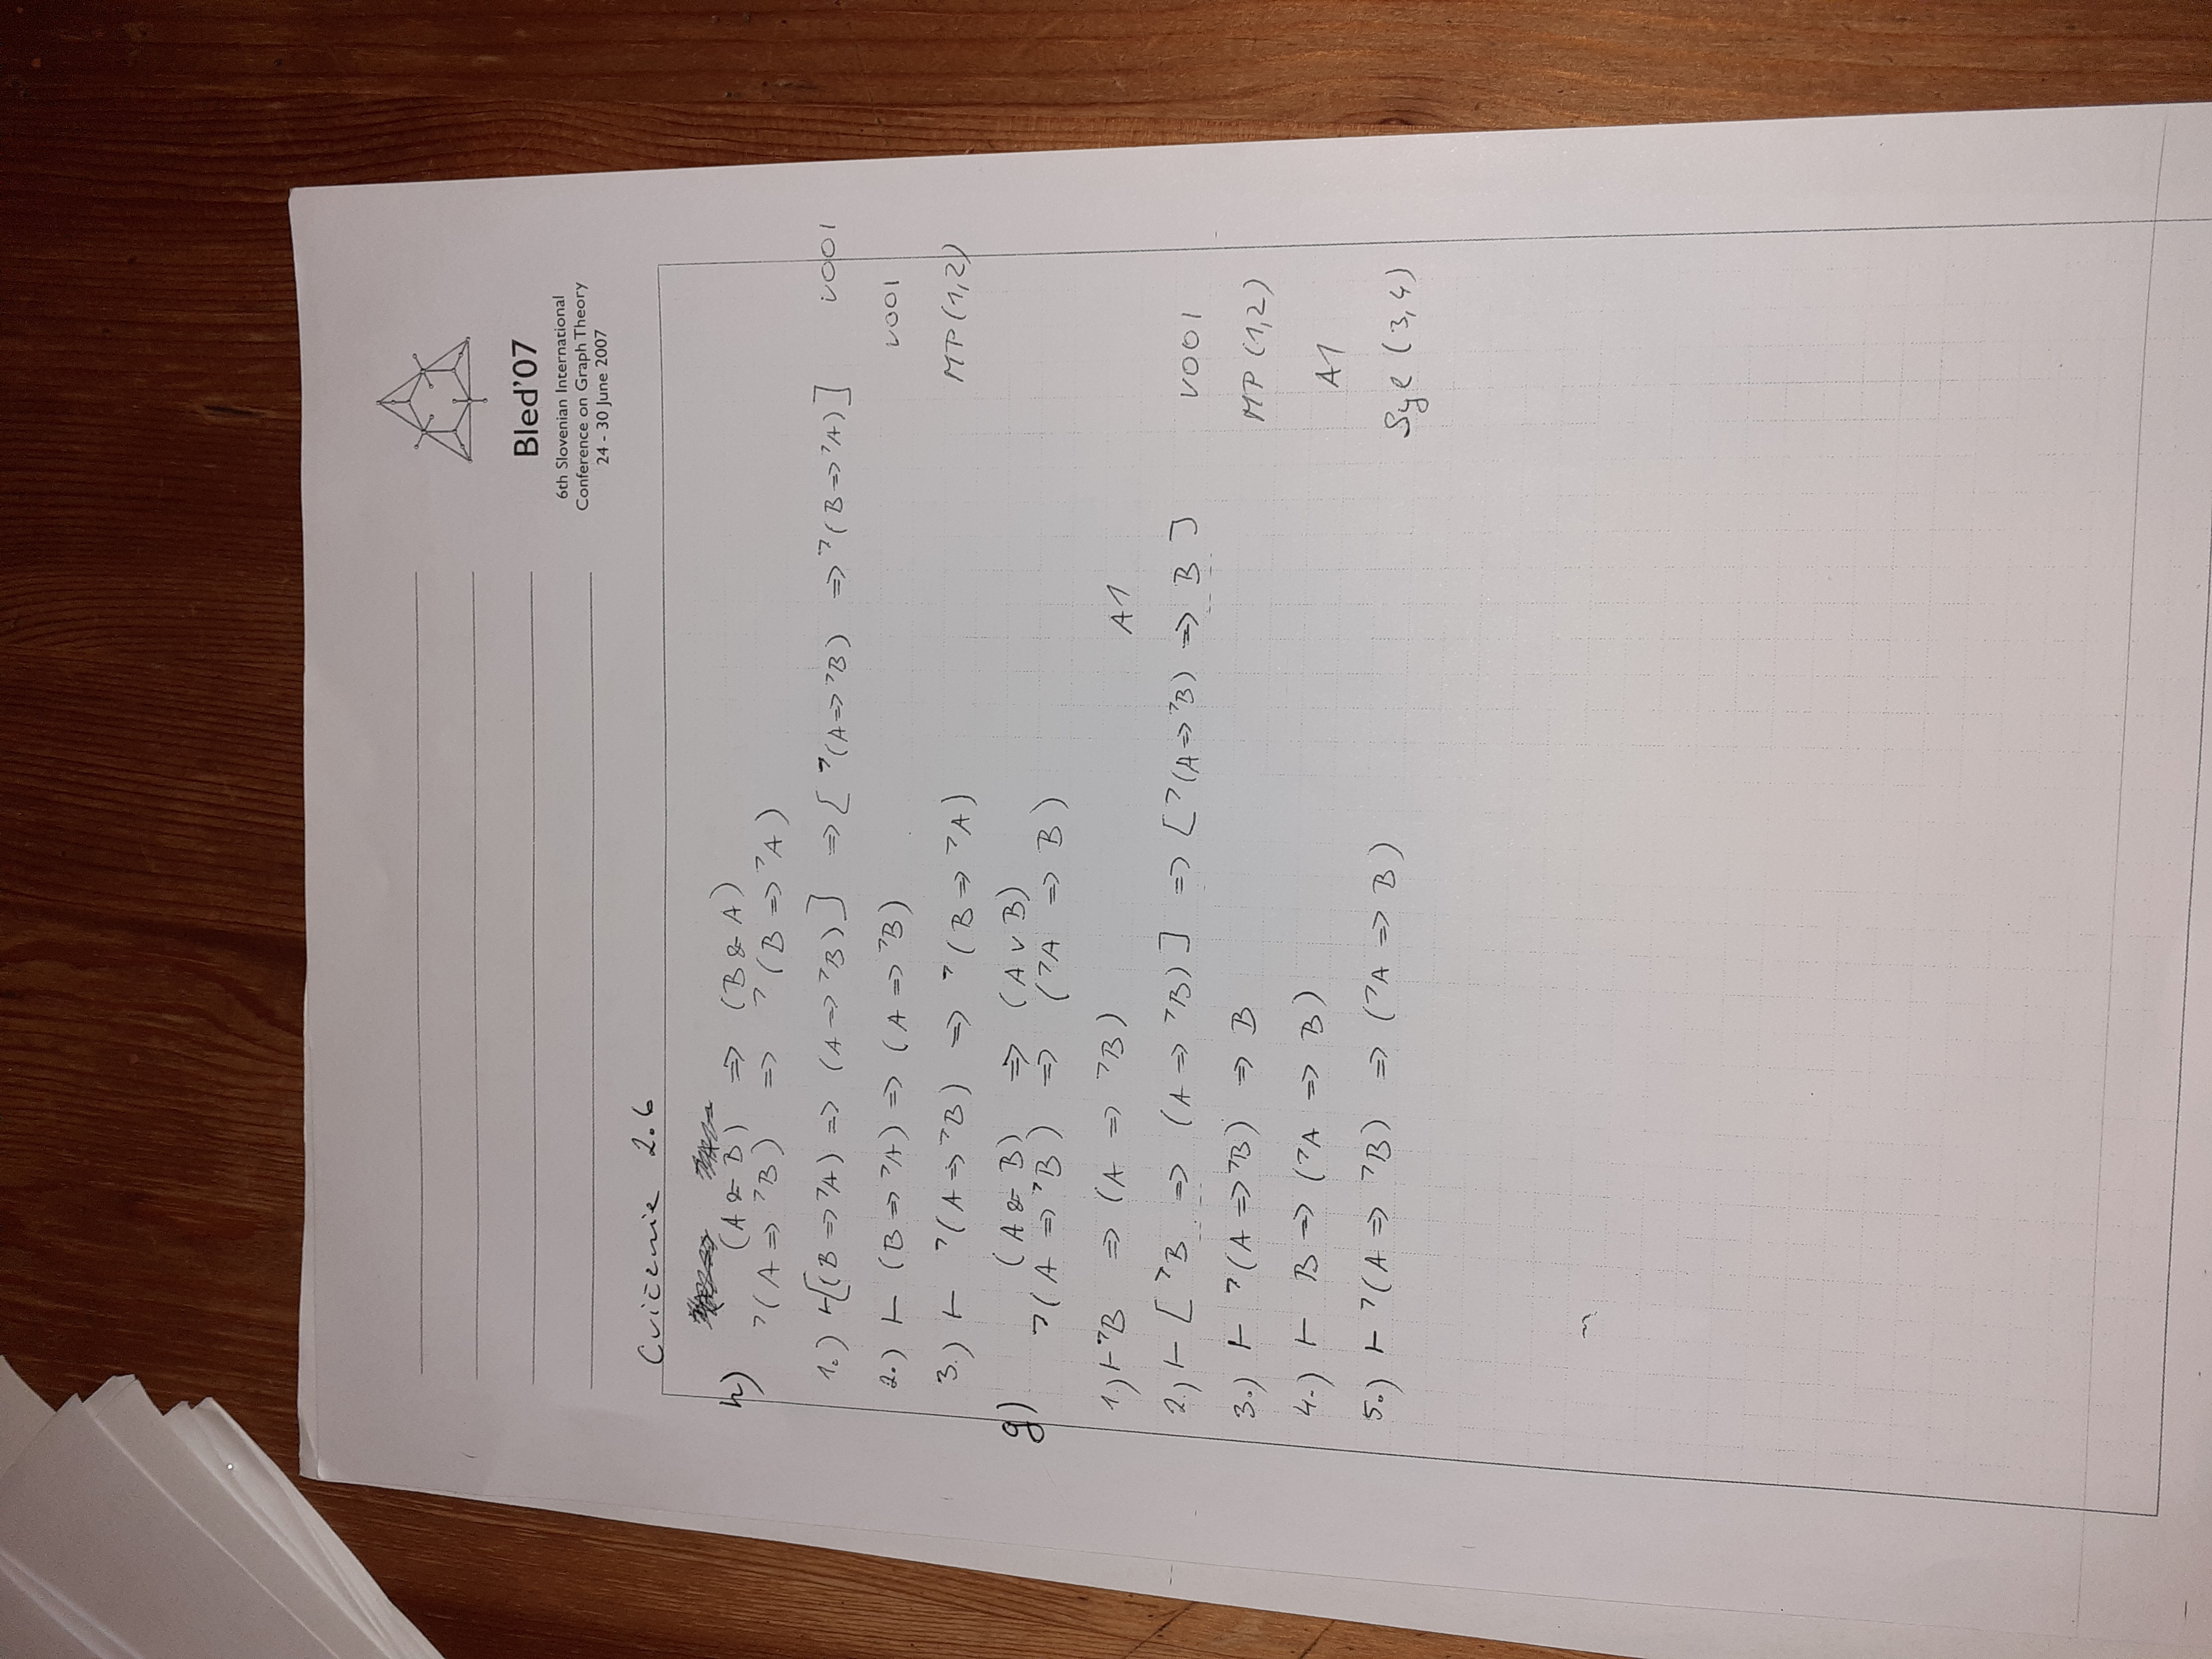 Bled'07
6th Slovenian International
Conference on Graph Theory
24 - 30 June 2007
Cvičenie 2.6
h) (A & B) => (B & A)
⌝(A => ⌝B) => ⌝(B => ⌝A)
1.) ⊢[(B => ⌝A) => (A => ⌝B)] => [⌝(A => ⌝B) => ⌝(B => ⌝A)] VOOI
2.) ⊢ (B => ⌝A) => (A => ⌝B) VOOI
3.) ⊢ ⌝(A => ⌝B) => ⌝(B => ⌝A) MP(1,2)
g) (A & B) => (A v B)
⌝(A => ⌝B) => (⌝A => B)
1.) ⊢ ⌝B => (A => ⌝B) A1
2.) ⊢ [⌝B => (A => ⌝B)] => [⌝(A => ⌝B) => B] VOOI
3.) ⊢ ⌝(A => ⌝B) => B MP(1,2)
4.) ⊢ B => (⌝A => B) A1
5.) ⊢ ⌝(A => ⌝B) => (⌝A => B) Syl (3,4)